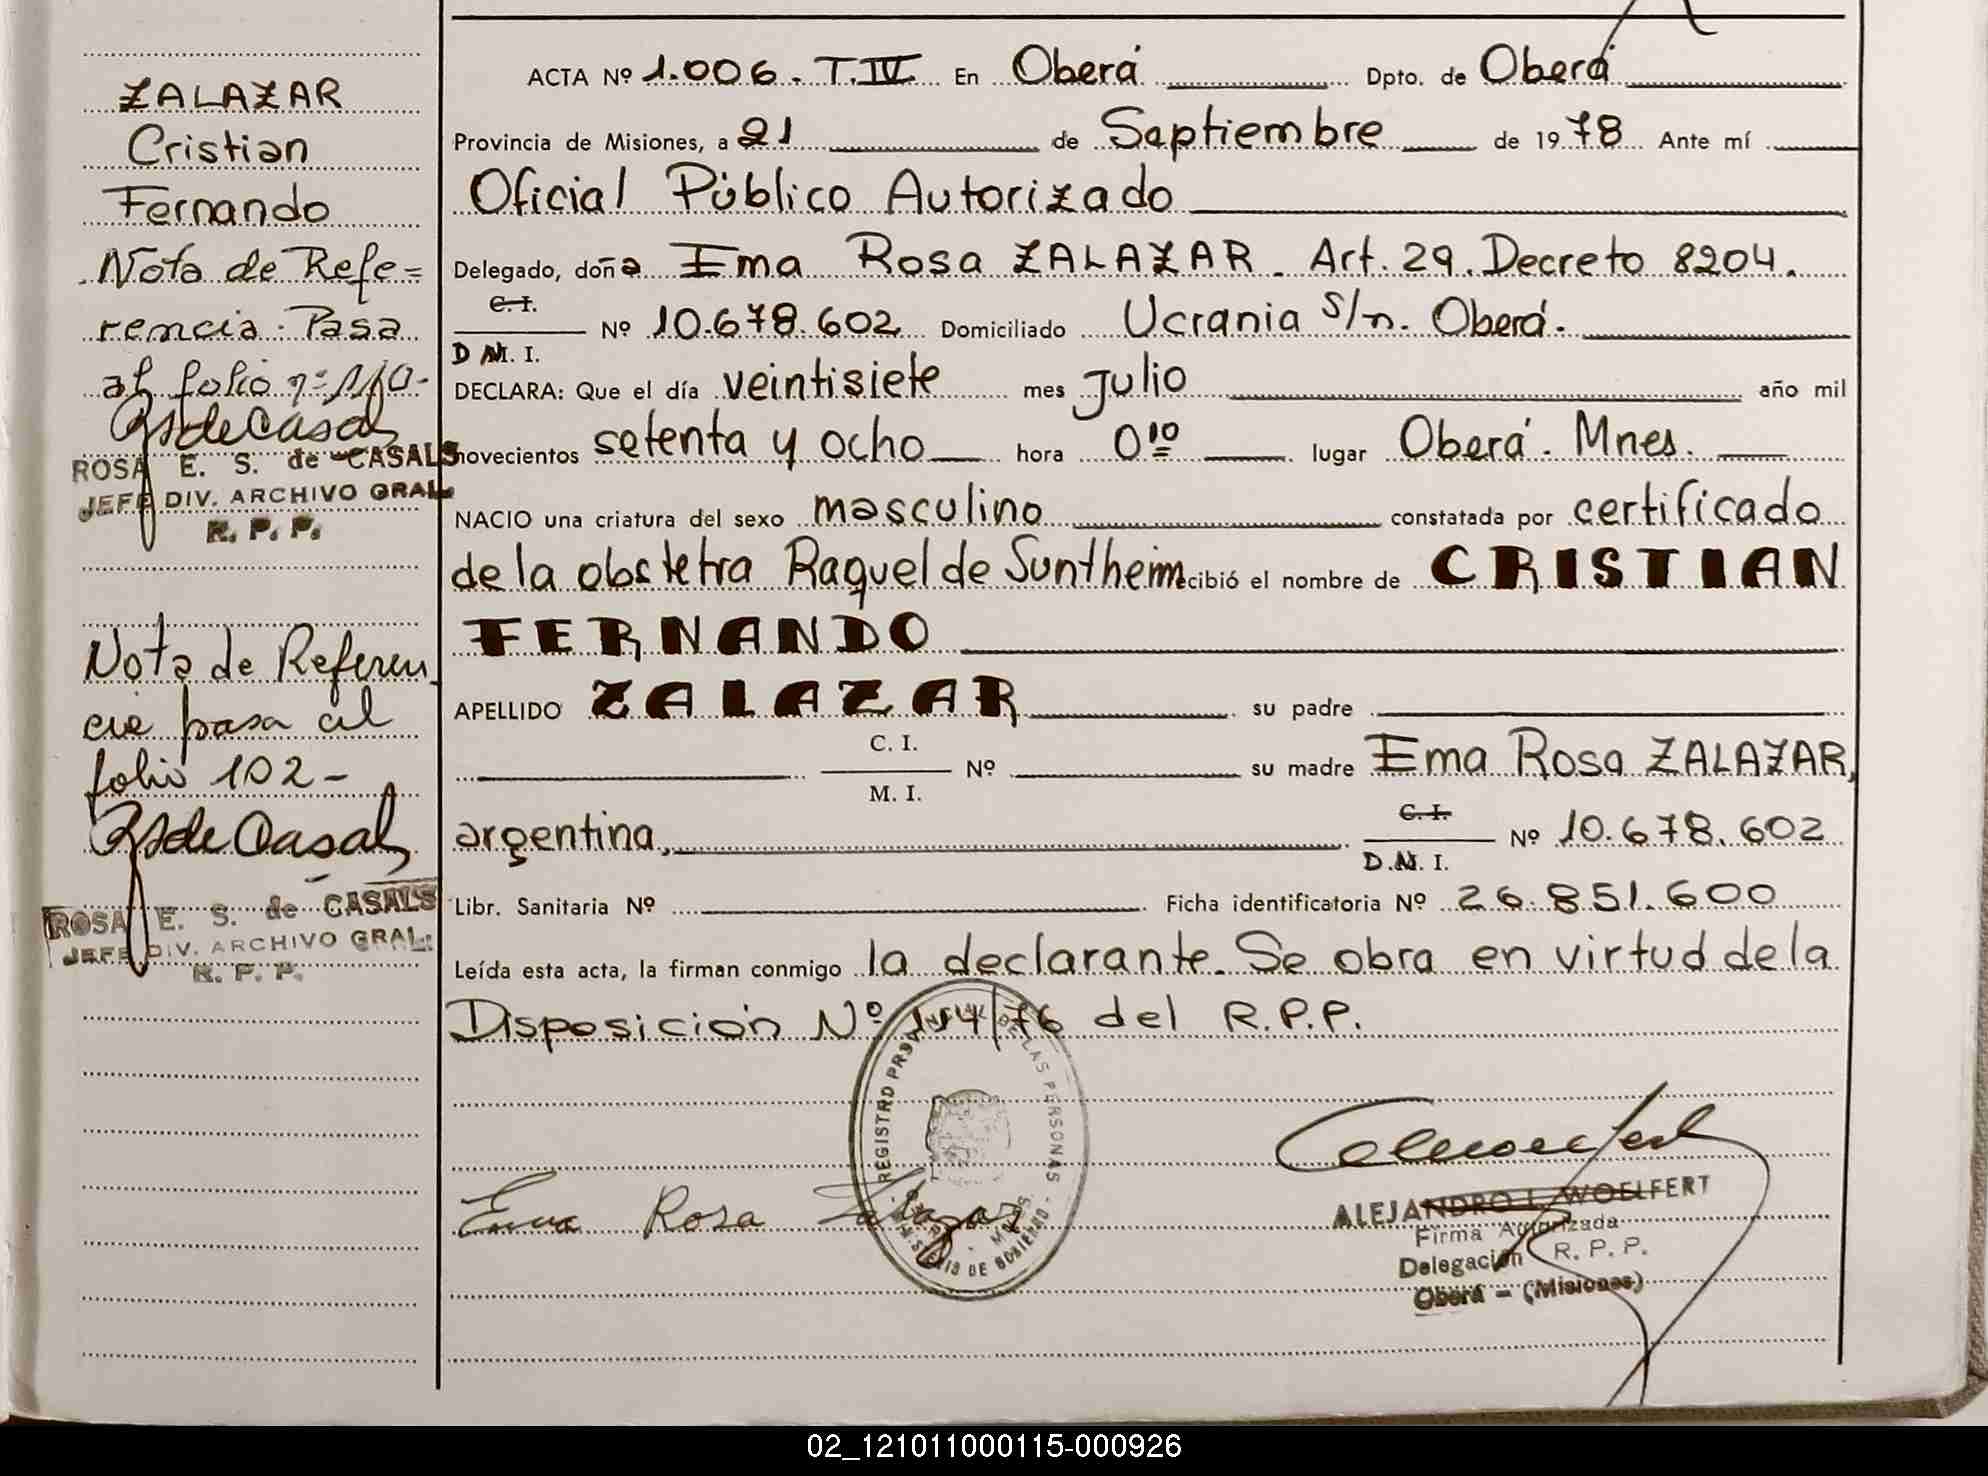 ZALAZAR
Cristian
Fernando
Nota de Refe=
rencia: Pasa
al folio nº 110-
RSdeCasals
ROSA E. S. de CASALS
JEFE DIV. ARCHIVO GRAL.
R. P. P.
Nota de Referen
cia pasa al
folio 102-
RSdeCasals
ROSA E. S. de CASALS
JEFE DIV. ARCHIVO GRAL.
R. P. P.
ACTA Nº 1.006. T.IV En Oberá Dpto. de Oberá
Provincia de Misiones, a 21 de Septiembre de 1978 Ante mí
Oficial Público Autorizado
Delegado, doña Ema Rosa ZALAZAR. Art. 29. Decreto 8204.
C. I.
Nº 10.678.602 Domiciliado Ucrania s/n. Oberá.
D N. I.
DECLARA: Que el día veintisiete mes Julio año mil
novecientos setenta y ocho hora 0 10 lugar Oberá. Mnes.
NACIO una criatura del sexo masculino constatada por certificado
de la obstetra Raquel de Suntheim cibió el nombre de CRISTIAN
FERNANDO
APELLIDO ZALAZAR su padre
C. I.
Nº su madre Ema Rosa ZALAZAR,
M. I.
argentina, C. I. Nº 10.678.602
D.N. I.
Libr. Sanitaria Nº Ficha identificatoria Nº 26.851.600
Leída esta acta, la firman conmigo la declarante. Se obra en virtud de la
Disposición Nº 114/76 del R.P.P.
REGISTRO PROVINCIAL DE LAS PERSONAS
MINISTERIO DE GOBIERNO
Ema Rosa Zalazar
ALEJANDRO L. WOELFERT
Firma Autorizada
Delegación R. P. P.
Oberá - (Misiones)
02_121011000115-000926